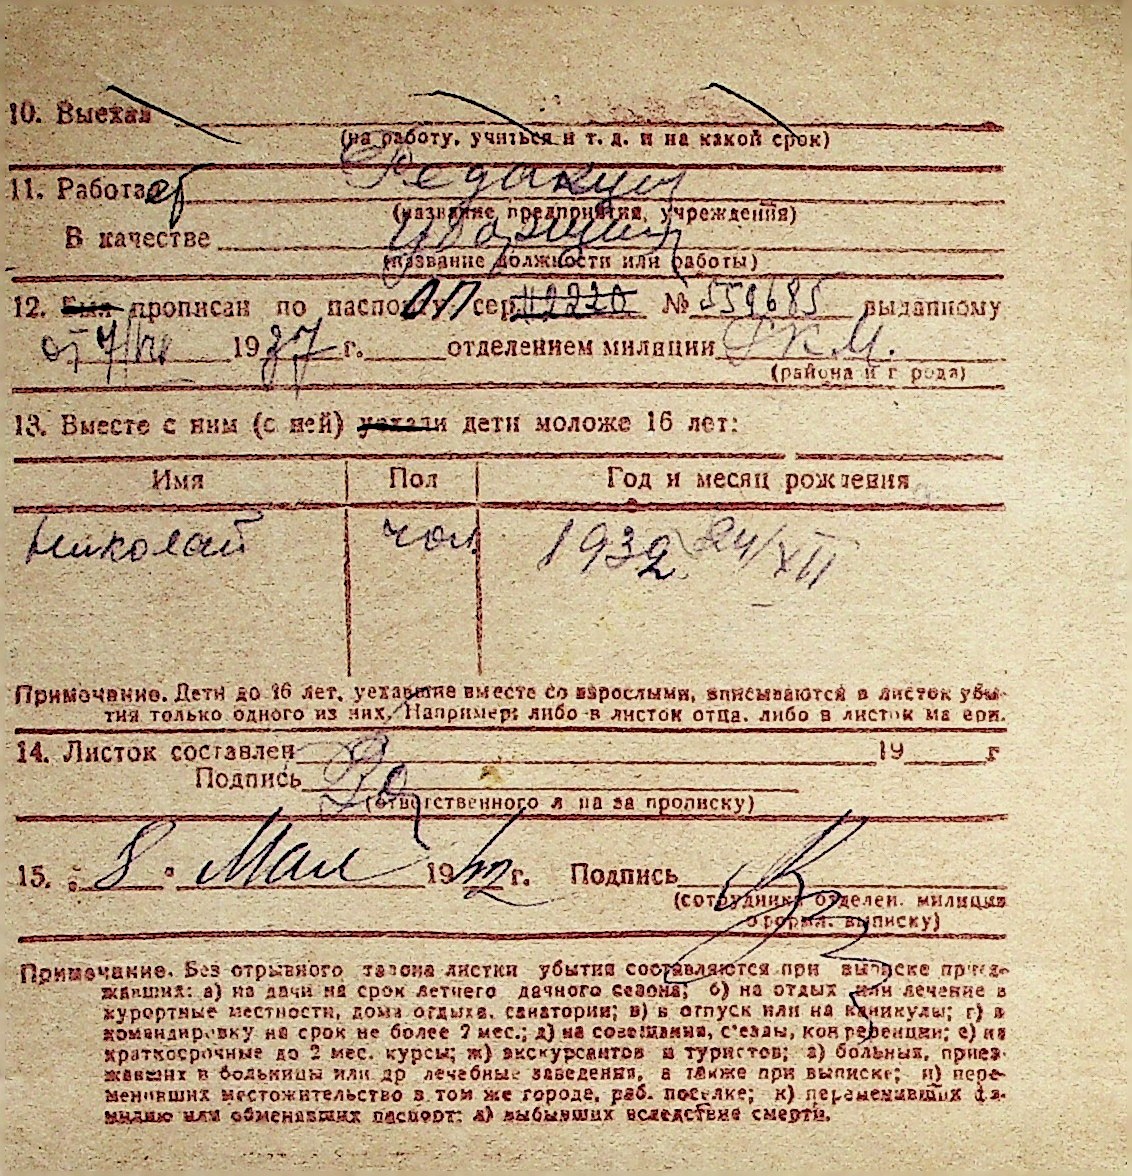 10. Выехал
(на работу, учиться и т. д. и на какой срок)
11. Работает Редакции
(название предприятия, учреждения)
В качестве уборщица
(название должности или работы)
12. Был прописан по паспорту ОП сер. II 2220 № 559685 выданному
от 7/VII 1937 г. отделением милиции РКМ.
(района и города)
13. Вместе с ним (с ней) уехали дети моложе 16 лет:
Имя Пол Год и месяц рождения
Николай чол 1932 24/XII
Примечание. Дети до 16 лет, уехавшие вместе со взрослыми, вписываются в листок убы-
тия только одного из них. Например: либо в листок отца, либо в листок матери.
14. Листок составлен 19 г
Подпись
(ответственного лица за прописку)
15. „ 8 " Мая 1942 г. Подпись
(сотрудника отделен. милиции
оформ. выписку)
Примечание. Без отрывного талона листки убытия составляются при выписке приез-
жавших: а) на дачи на срок летнего дачного сезона; б) на отдых или лечение в
курортные местности, дома отдыха, санатории; в) в отпуск или на каникулы; г) в
командировку на срок не более 2 мес.; д) на совещания, с'езды, конференции; е) на
краткосрочные до 2 мес. курсы; ж) экскурсантов и туристов; з) больных, приез-
жавших в больницы или др лечебные заведения, а также при выписке; и) пере-
менивших местожительство в том же городе, раб. поселке; к) переменивших фа-
милию или обменявших паспорт; л) выбывших вследствие смерти.